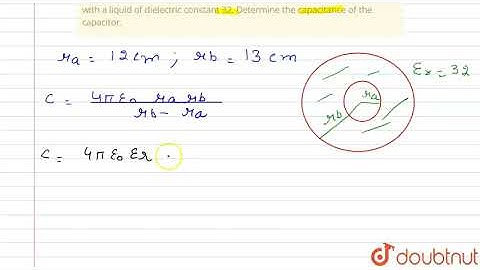 with a liquid of dielectric constant 32. Determine the capacitance of the
capacitor.
ra = 12cm ; rb = 13 cm
εr = 32
C = 4πε0 ra rb
rb - ra
ra
rb
C = 4π ε0 εr
doubtnut